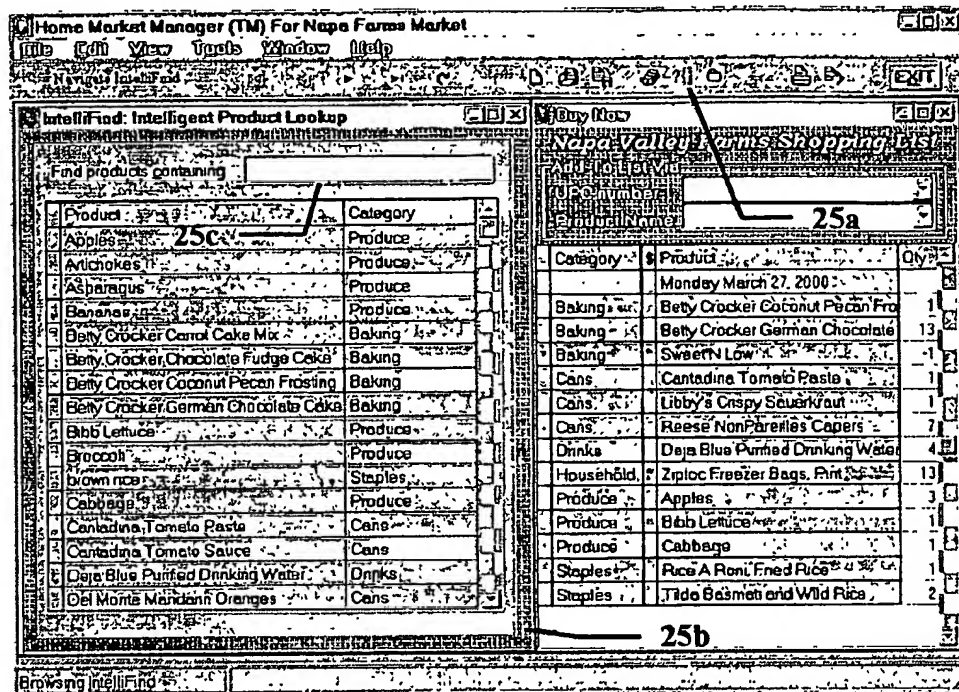 Home Market Manager (TM) For Napa Farms Market
File Edit View Tools Window Help
Navigate IntelliFind EXIT
IntelliFind: Intelligent Product Lookup
Find products containing
25c
Product Category
Apples Produce
Artichokes Produce
Asparagus Produce
Bananas Produce
Betty Crocker Carrot Cake Mix Baking
Betty Crocker Chocolate Fudge Cake Baking
Betty Crocker Coconut Pecan Frosting Baking
Betty Crocker German Chocolate Cake Baking
Bibb Lettuce Produce
Broccoli Produce
brown rice Staples
Cabbage Produce
Cantadina Tomato Paste Cans
Cantadina Tomato Sauce Cans
Deja Blue Purified Drinking Water Drinks
Del Monte Mandarin Oranges Cans
Buy Now
Napa Valley Farms Shopping List
Add To List Via
UPC number
Product Name
25a
Category $ Product Qty
Monday March 27, 2000
Baking Betty Crocker Coconut Pecan Fro 1
Baking Betty Crocker German Chocolate 13
Baking Sweet'N Low 1
Cans Cantadina Tomato Paste 1
Cans Libby's Crispy Sauerkraut 1
Cans Reese NonPareilles Capers 7
Drinks Deja Blue Purified Drinking Water 4
Household Ziploc Freezer Bags, Pint 13
Produce Apples 3
Produce Bibb Lettuce 1
Produce Cabbage 1
Staples Rice A Roni, Fried Rice 1
Staples Tilda Basmati and Wild Rice 2
25b
Browsing IntelliFind